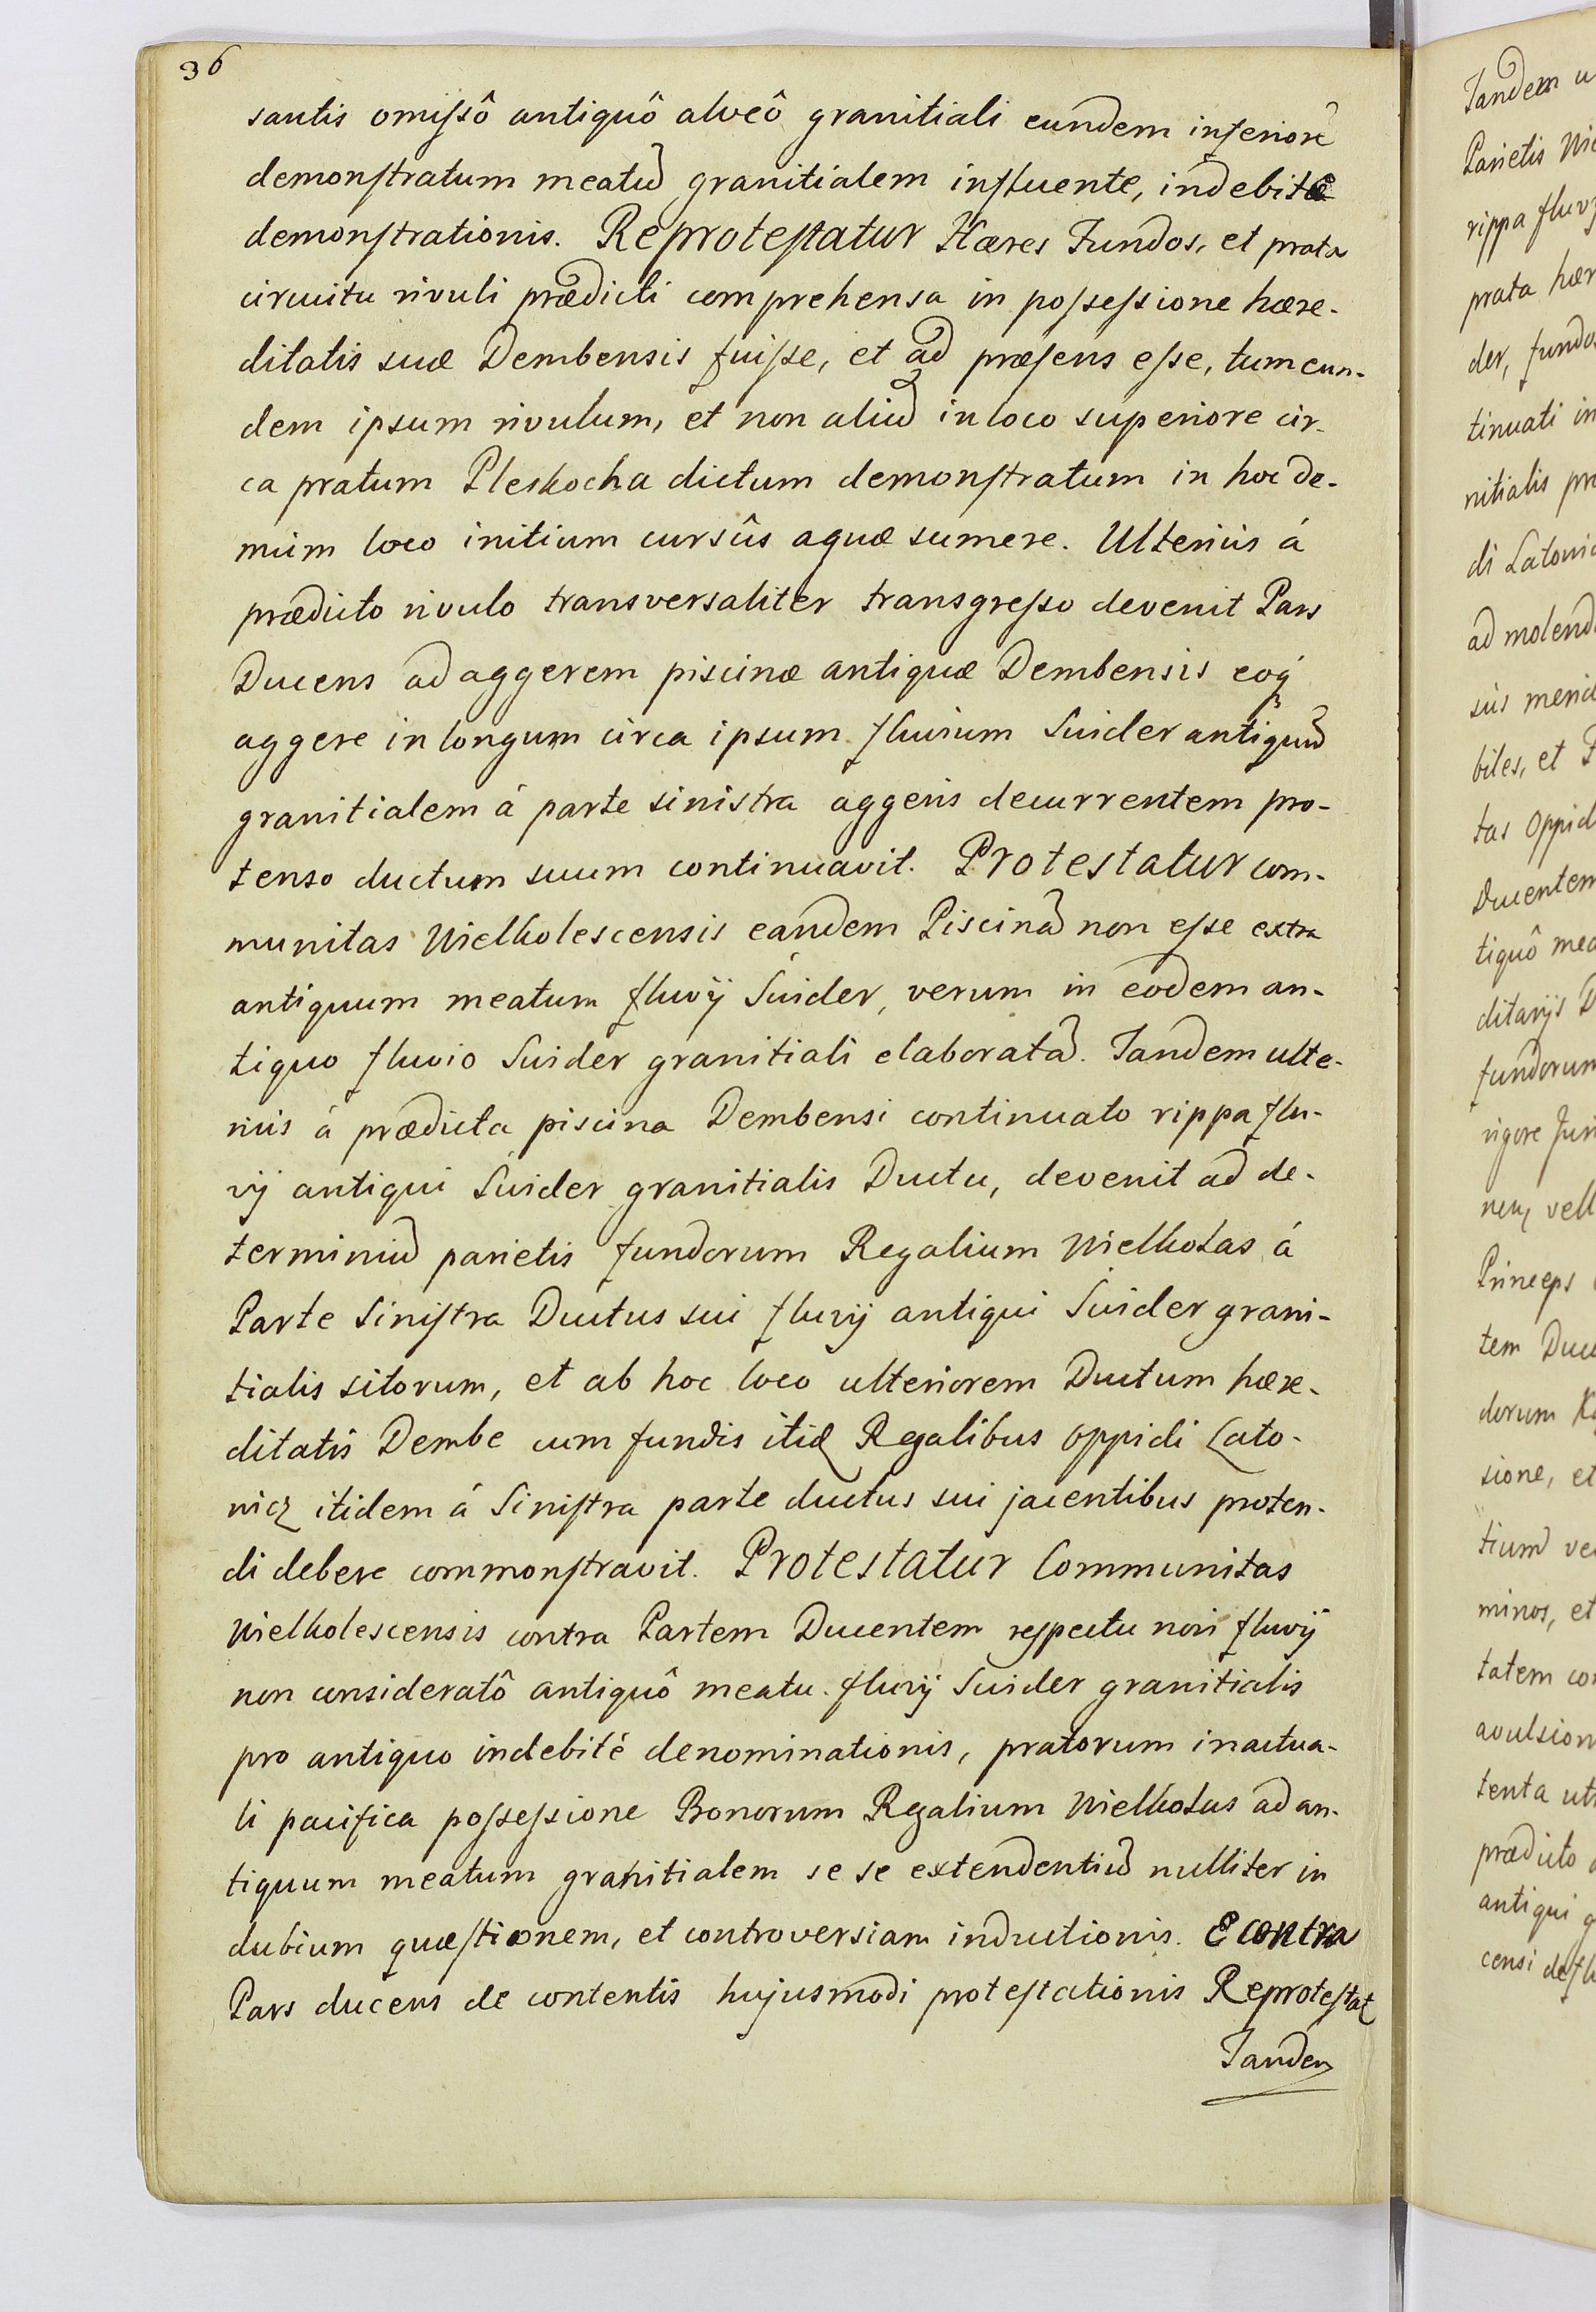 36
santis omiſsô antiquô alveô granitiali eundem inferiorē
demonſtratum meatū granitialem influente, indebitæ
demonſtrationis. Reproteſtatur Hæres Fundos, et prata
circuitu rivuli prædicti comprehensa in poſseſsione hære-
ditatis suæ Dembensis fuiſse, et ad præſens eſse, tum eun-
dem ipsum rivulum, et non aliud in loco superiore cir-
ca pratum Pleskocha dictum demonſtratum in hoc de-
mùm loco initium cursûs aquæ sumere. Ulteriùs á
prædicto rivulo transversaliter transgreſso devenit Pars
Ducens ad aggerem piscinæ antiquæ Dembensis eoq́
aggere in longum circa ipsum fluvium Suider antiquū
granitialem á parte sinistra aggeris decurrentem pro-
tenso ductum suum continuavit. Protestatur com-
munitas Wielkolescensis eandem Piscinā non eſse extra
antiquum meatum fluvij Suider, verum in eodem an-
tiquo fluvio Suider granitiali elaboratā. Tandem ulte-
riùs á prædicta piscina Dembensi continuato rippa flu-
vij antiqui Suider granitialis Ductu, devenit ad de-
terminiū parietis fundorum Regalium Wielkolas á
Parte Siniſtra Ductus sui fluvij antiqui Suider grani-
tialis sitorum, et ab hoc loco ulteriorem Ductum hære-
ditatis Dembe cum fundis itid Regalibus oppidi Lato-
wicz itidem á Siniſtra parte ductus sui jacentibus proten-
di debere commonſtravit. Protestatur Communitas
Wielkolescensis contra Partem Ducentem reſpectu novi fluvij
non consideratô antiquô meatu fluvij Suider granitialis
pro antiquo indebitè denominationis, pratorum in actua-
li pacifica poſseſsione Bonorum Regalium Wielkolas ad an-
tiquum meatum granitialem se se extendentiū nulliter in
dubium quæſtionem, et controversiam inductionis. E contra
Pars ducens de contentis hujusmodi proteſtationis Reproteſtat
Tandem
Tandem u
Parietis Wie
rippa fluvij
prata hær
der, fundo
tinuati in
nitialis pro
di Latowic
ad molend
sùs merid
biles, et
tas Oppid
Ducentem
tiquô mea
ditarijs D
fundorum
rigore Juri
vell
Princeps
tem Duc
dorum
sione, et
tium ve
minos, et
tatem con
avulsion
tenta ut
prædicto
antiqui g
censi defl